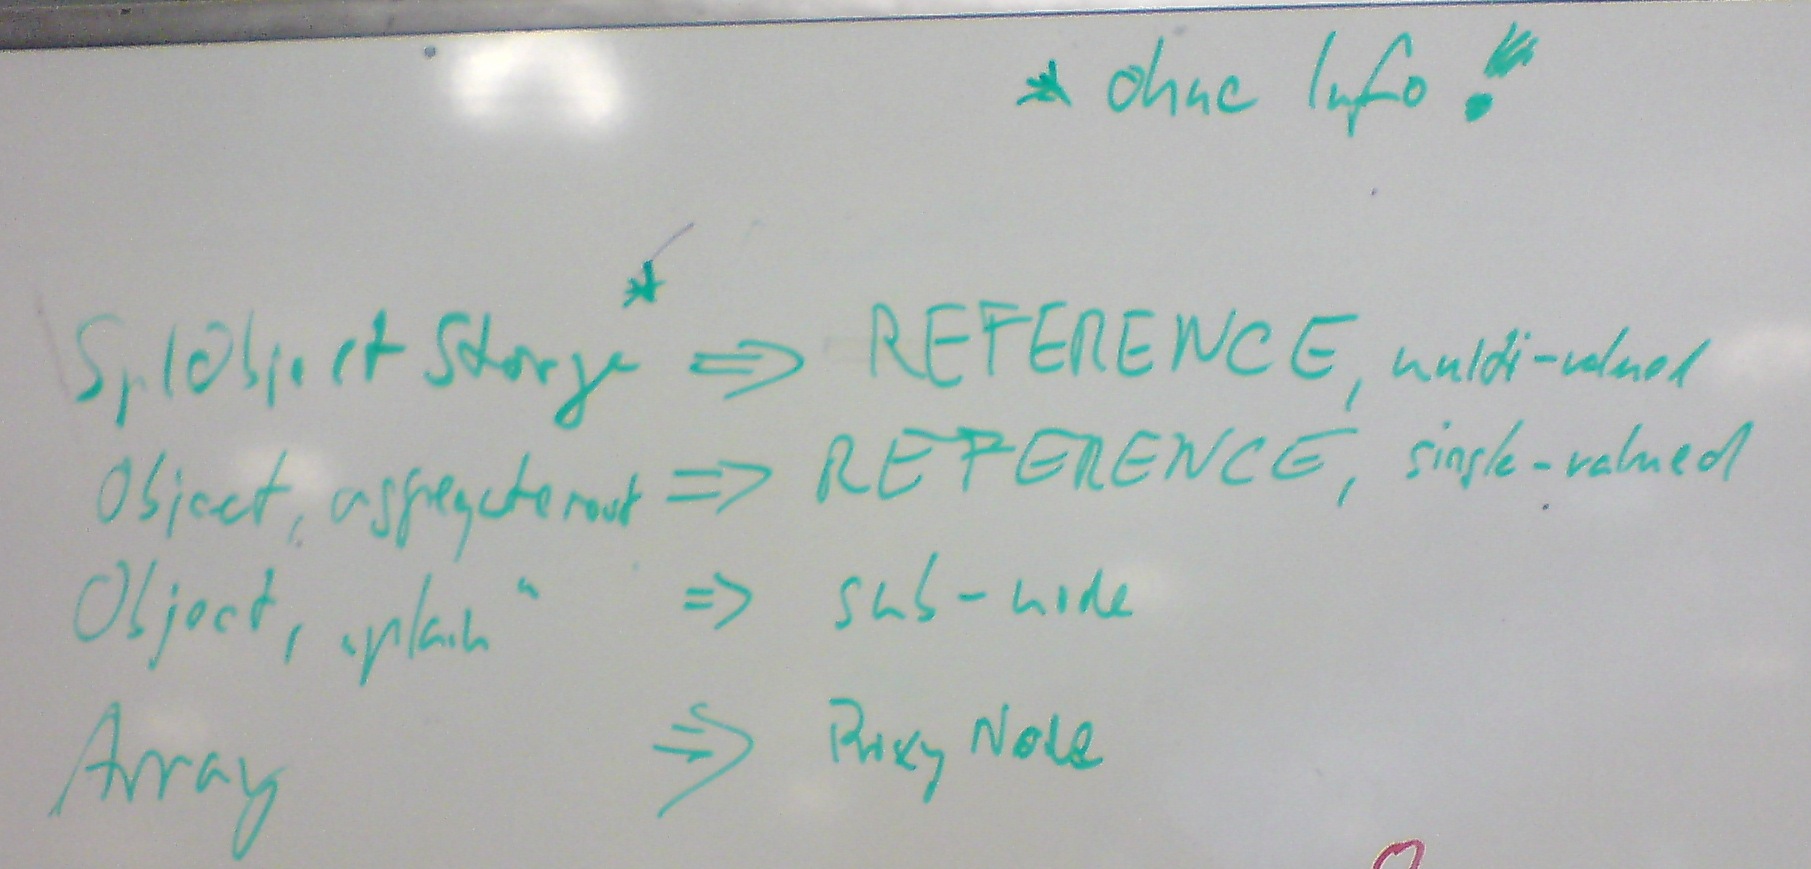 * ohne Info!
SplObjectStorage* => REFERENCE, multi-valued
Object, aggregate root => REFERENCE, single-valued
Object, „plain“ => sub-node
Array => Proxy Node